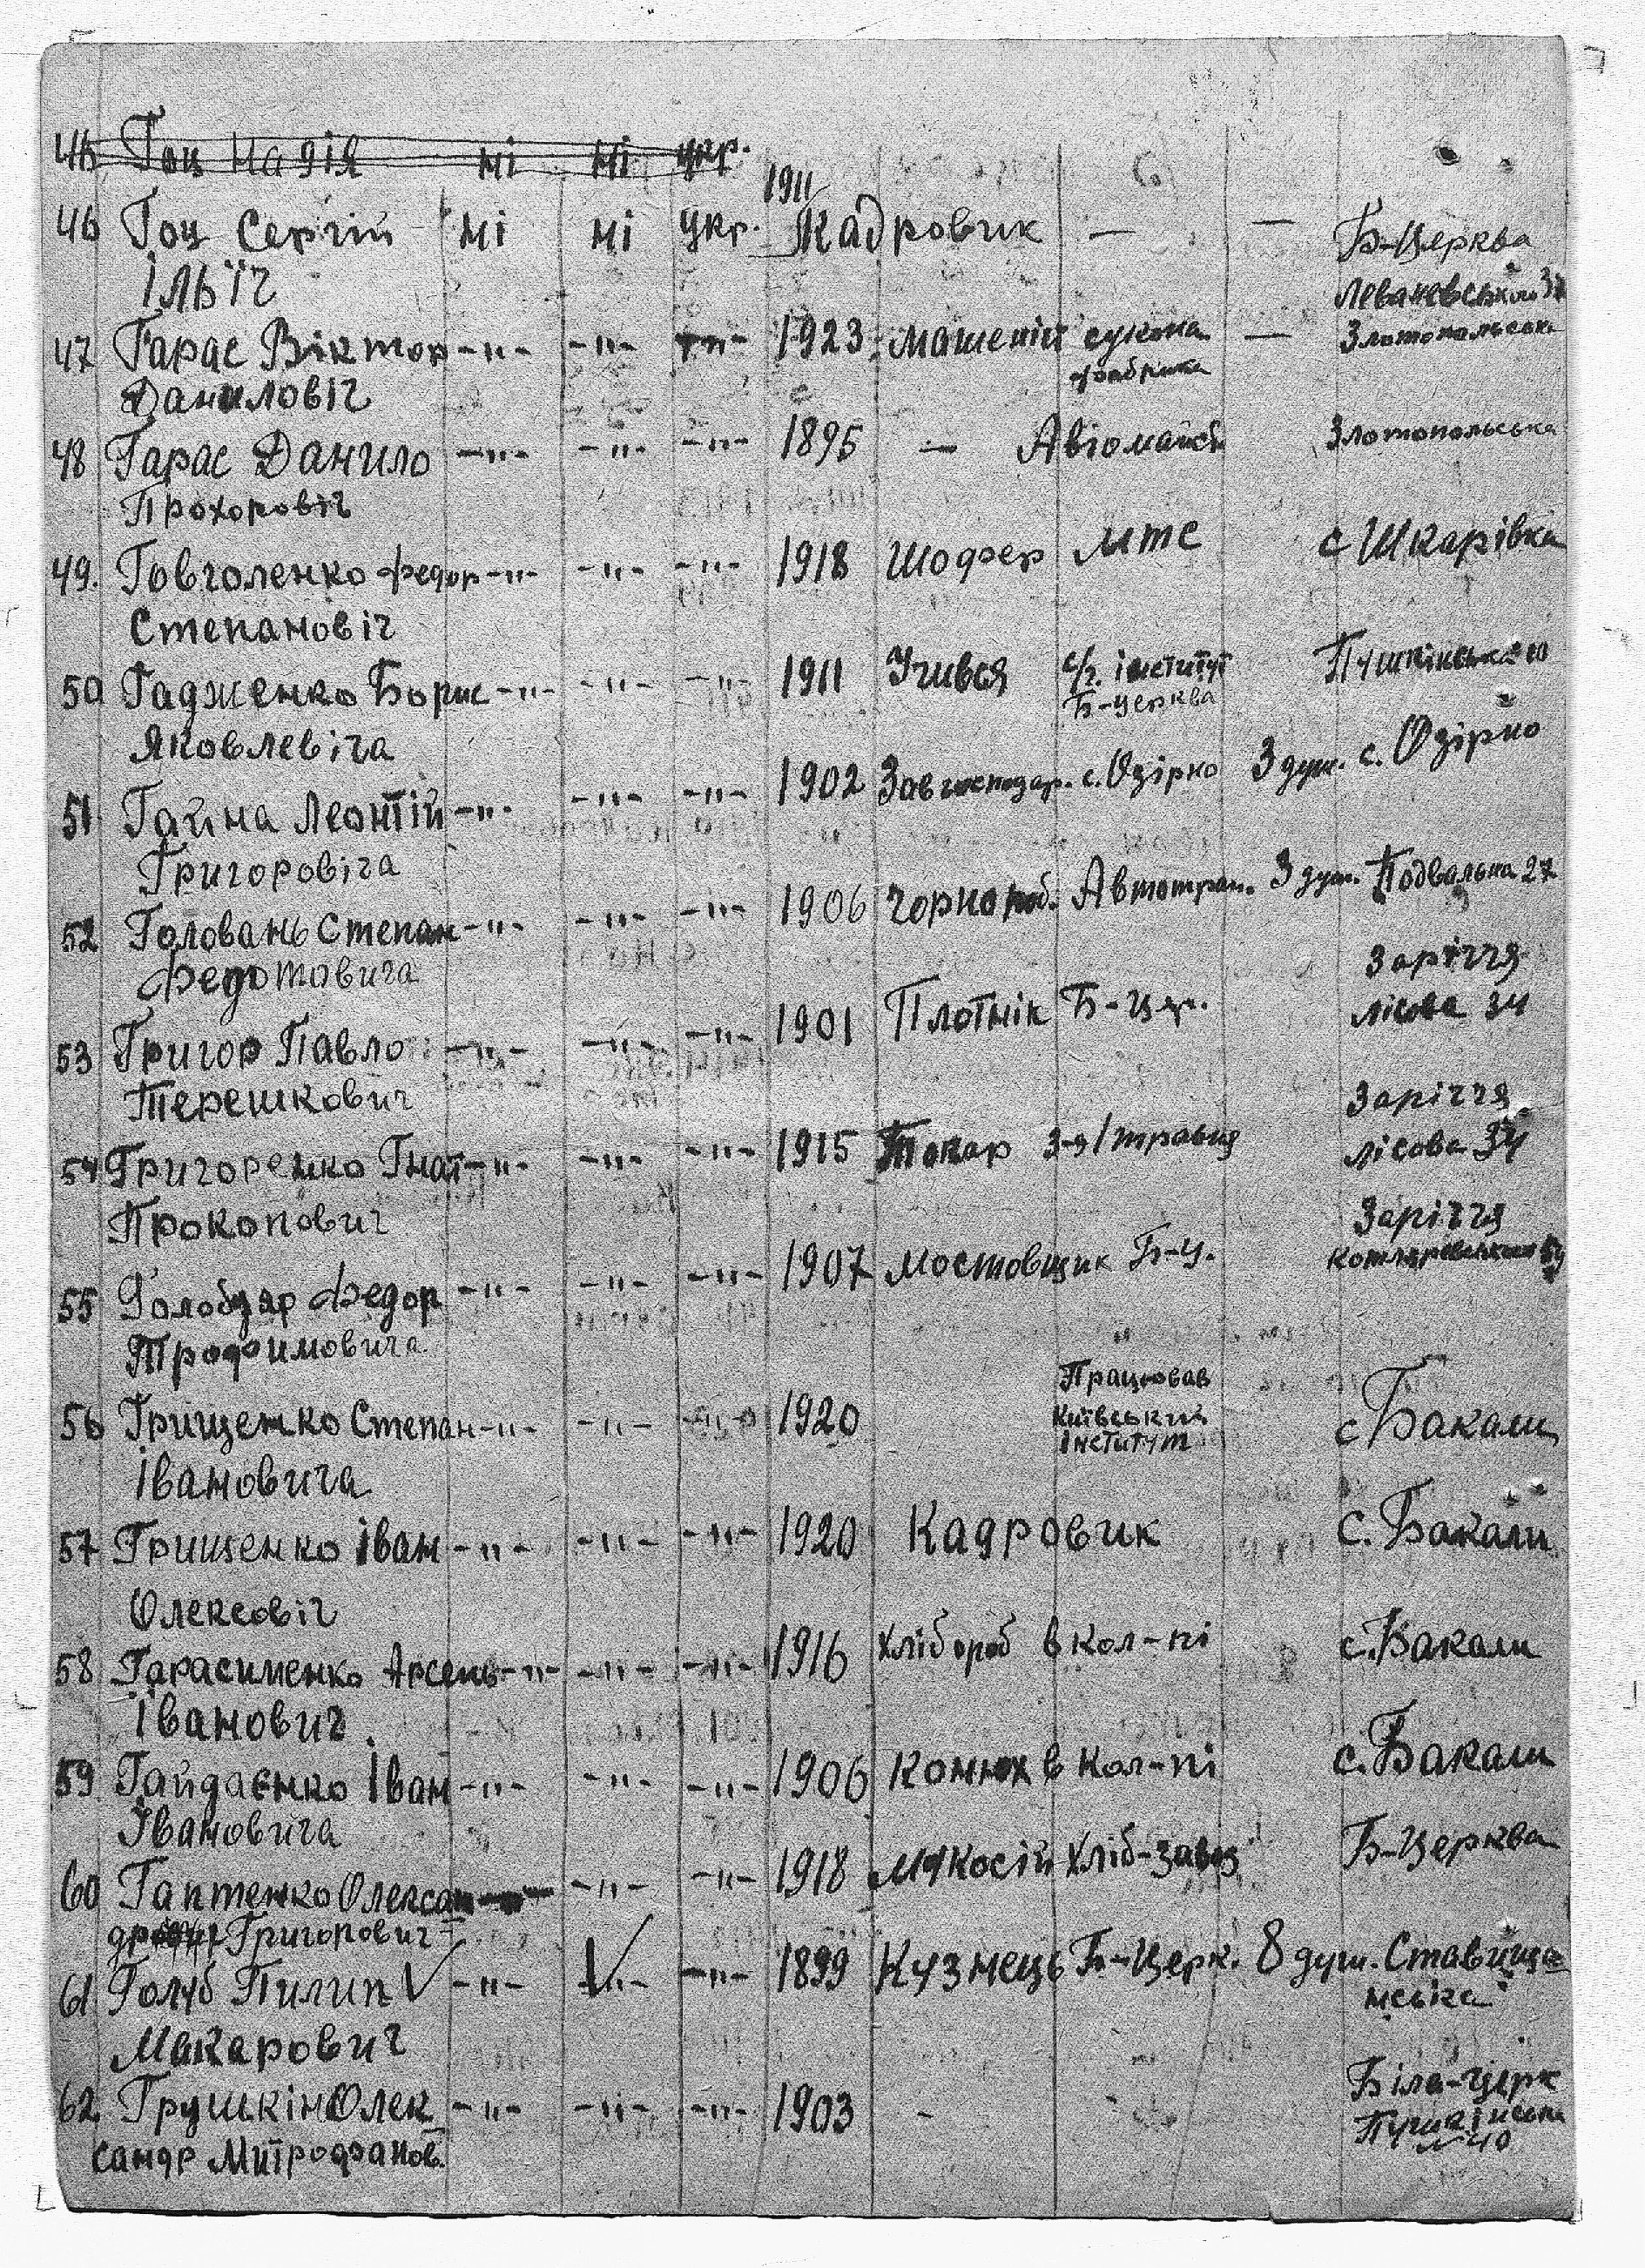 46 Гоц Надія ні ні укр.
1911
46 Гоц Сергій ні ні укр. Кадровик — — Б-Церква
Ільїч Леваневського 37
47 Гарас Віктор -"- -"- -"- 1923 сукона — Злотопольська
Даниловіч фабрика
48 Гарас Данило -"- -"- -"- 1895 — Злотопольська
Прохоровіч
49. Говголенко Федор -"- -"- -"- 1918 Шофер МТС с Шкарівка
Степановіч
50 Гадженко Борис -"- -"- -"- 1911 Учився с/г. інститут Пушкінська 10
Яковлевіча Б-церква
51 Гайна Леонтій -"- -"- -"- 1902 Завгосподар. с. Озірно 3 душ. с. Озірно
Григоровіча
52 Головань Степан -"- -"- -"- 1906 Чорнороб. Автотран. 3 душ. Подвальна 27
Федотовича Заріччя
53 Григор Павло -"- -"- -"- 1901 Плотнік Б-Цер. лісова 34
Терешкович Заріччя
54 Григоренко Гнат -"- -"- -"- 1915 Токар 3-я/травня лісова 34
Прокопович Заріччя
55 Голобзар Федор -"- -"- -"- 1907 Мостовщик Б-Ц. Котляревського
Трофимовича
Працював
56 Грищенко Степан -"- -"- -"- 1920 Київський с Бакали
Івановича Інститут
57 Грищенко Іван -"- -"- -"- 1920 Кадровик с. Бакали
Олексовіч
58 Гарасименко Арсень -"- -"- -"- 1916 Хлібороб в кол-пі с. Бакали
Іванович
59 Гайдаєнко Іван -"- -"- -"- 1906 Конюх в кол-пі с. Бакали
Івановича
60 Гаптенко Олексан -"- -"- 1918 Хліб-завод Б-Церква
Григорович
61 Голуб Пилип -"- -"- -"- 1899 Кузнець Б-Церк. 8 душ. Ставища=
Макарович нська
62. Грушкін Олек -"- -"- -"- 1903 - - Біла-Церк
сандр Митрофанов. №40